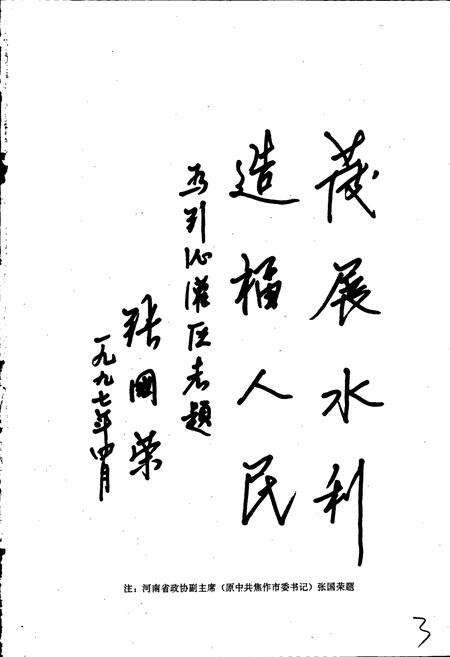 发展水利
造福人民
为引沁灌区志题
张國荣
一九九七年四月
注：河南省政协副主席（原中共焦作市委书记）张国荣题
3